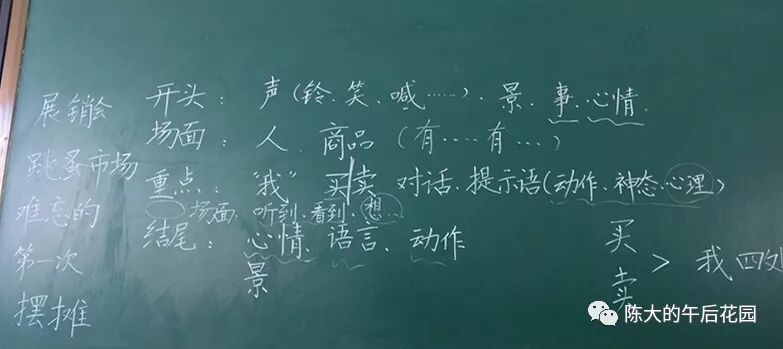 展销会
跳蚤市场
难忘的
第一次
摆摊
开头：声(铃、笑、喊……)、景、事、心情、
场面：人、商品（有……有…）
重点："我" 买卖 对话、提示语(动作、神态、心理)
场面、听到、看到、想…
结尾：心情、语言、动作
景
买
卖 > 我四处
陈大的午后花园